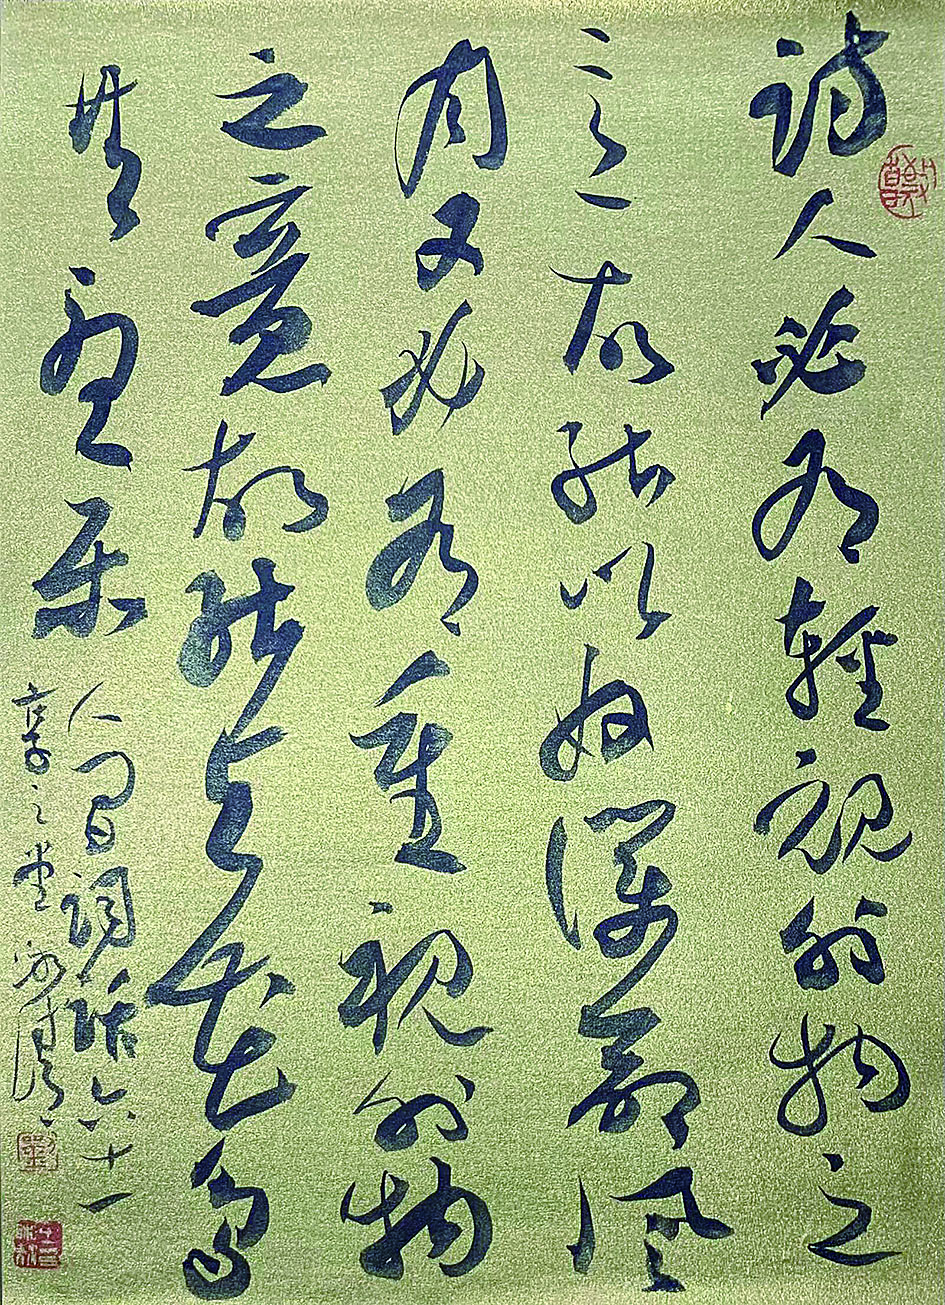 詩人必有輕視外物之
意故能以奴僕命風
月又必有重視外物
之意故能與花鳥
共憂樂
人間詞話六十一
享之堂
劉